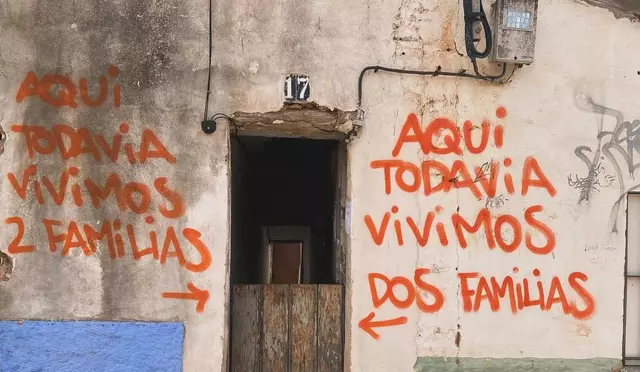 17
AQUI
TODAVIA
VIVIMOS
2 FAMILIAS
AQUI
TODAVIA
VIVIMOS
DOS FAMILIAS